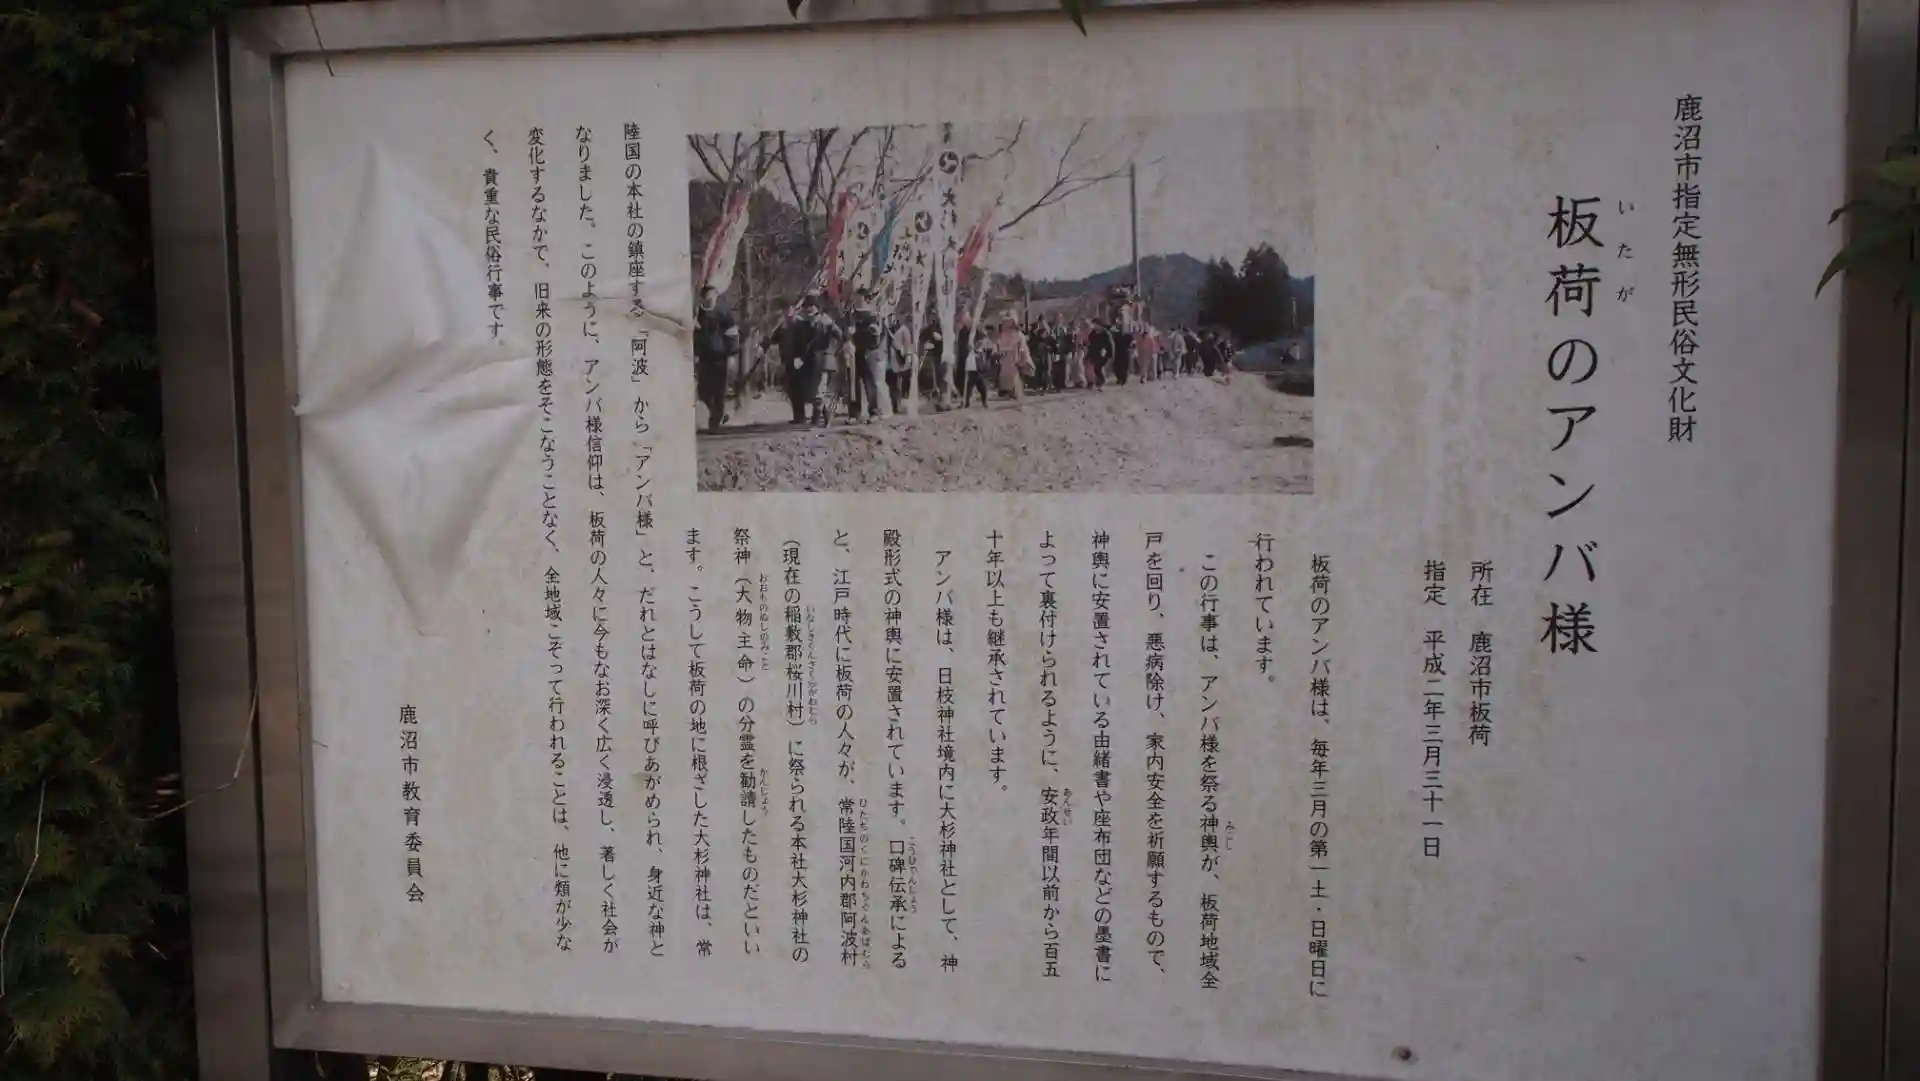 鹿沼市指定無形民俗文化財
いたが
板荷のアンバ様
所在 鹿沼市板荷
指定 平成二年三月三十一日
板荷のアンバ様は、毎年三月の第一土・日曜日に
行われています。
この行事は、アンバ様を祭る神輿が、板荷地域全
みこし
戸を回り、悪病除け、家内安全を祈願するもので、
神輿に安置されている由緒書や座布団などの墨書に
よって裏付けられるように、安政年間以前から百五
あんせい
十年以上も継承されています。
アンバ様は、日枝神社境内に大杉神社として、神
殿形式の神輿に安置されています。口碑伝承による
こうひでんしょう
と、江戸時代に板荷の人々が、常陸国河内郡阿波村
ひたちのくにかわちぐんあばむら
(現在の稲敷郡桜川村)に祭られる本社大杉神社の
いなしきぐんさくらがわむら
祭神(大物主命)の分霊を勧請したものだといい
おおものぬしのみこと
かんじょう
ます。こうして板荷の地に根ざした大杉神社は、常
陸国の本社の鎮座する「阿波」から「アンバ様」と、だれとはなしに呼びあがめられ、身近な神と
なりました。このように、アンバ様信仰は、板荷の人々に今もなお深く広く浸透し、著しく社会が
変化するなかで、旧来の形態をそこなうことなく、全地域こぞって行われることは、他に類が少な
く、貴重な民俗行事です。
鹿沼市教育委員会